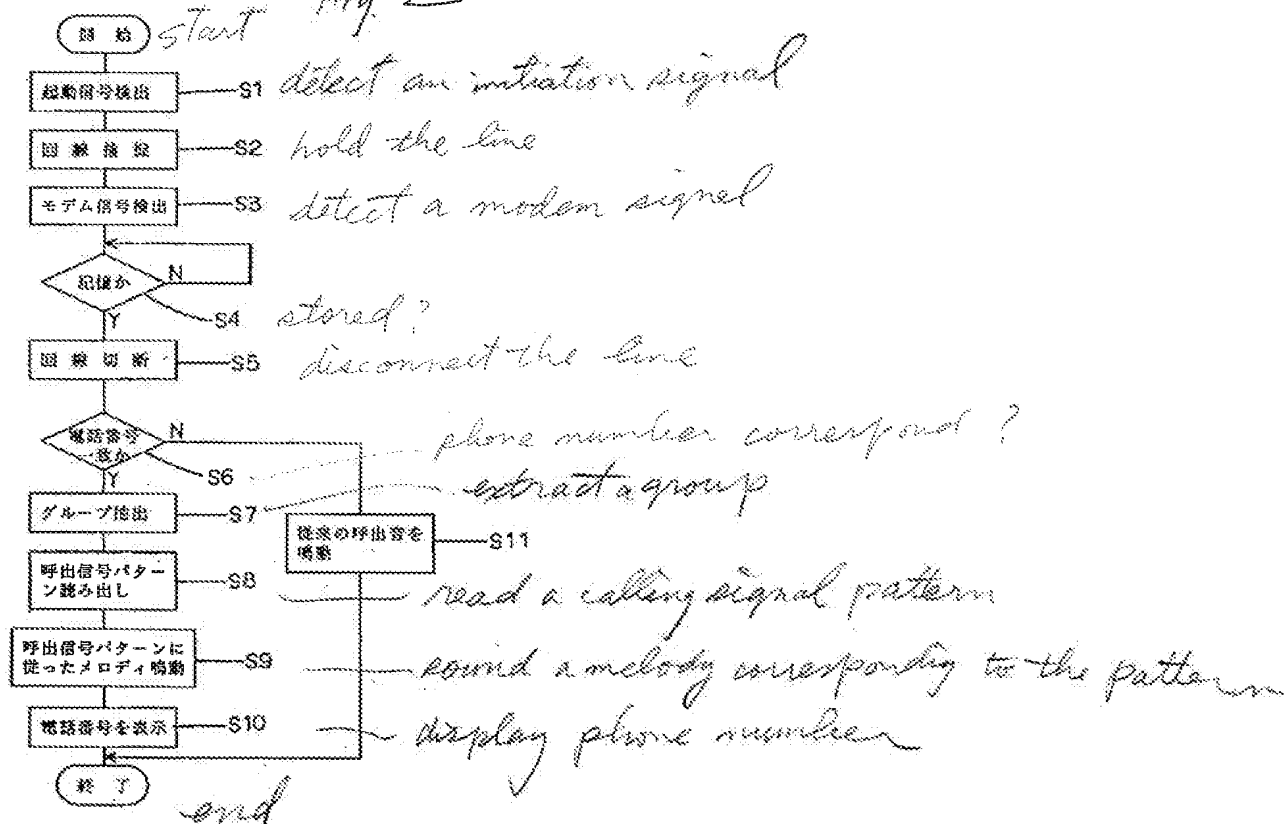 Fig. 2
開 始
start
起動信号検出
S1
detect an initiation signal
回 線 接 続
S2
hold the line
モデム信号検出
S3
detect a modem signal
記憶か
N
Y
S4
stored?
回 線 切 断
S5
disconnect the line
電話番号
一致か
N
Y
S6
phone number correspond?
グループ抽出
S7
extract a group
従来の呼出音を
鳴動
S11
呼出信号パター
ン読み出し
S8
read a calling signal pattern
呼出信号パターンに
従ったメロディ鳴動
S9
sound a melody correspondig to the pattern
電話番号を表示
S10
display phone number
終 了
end